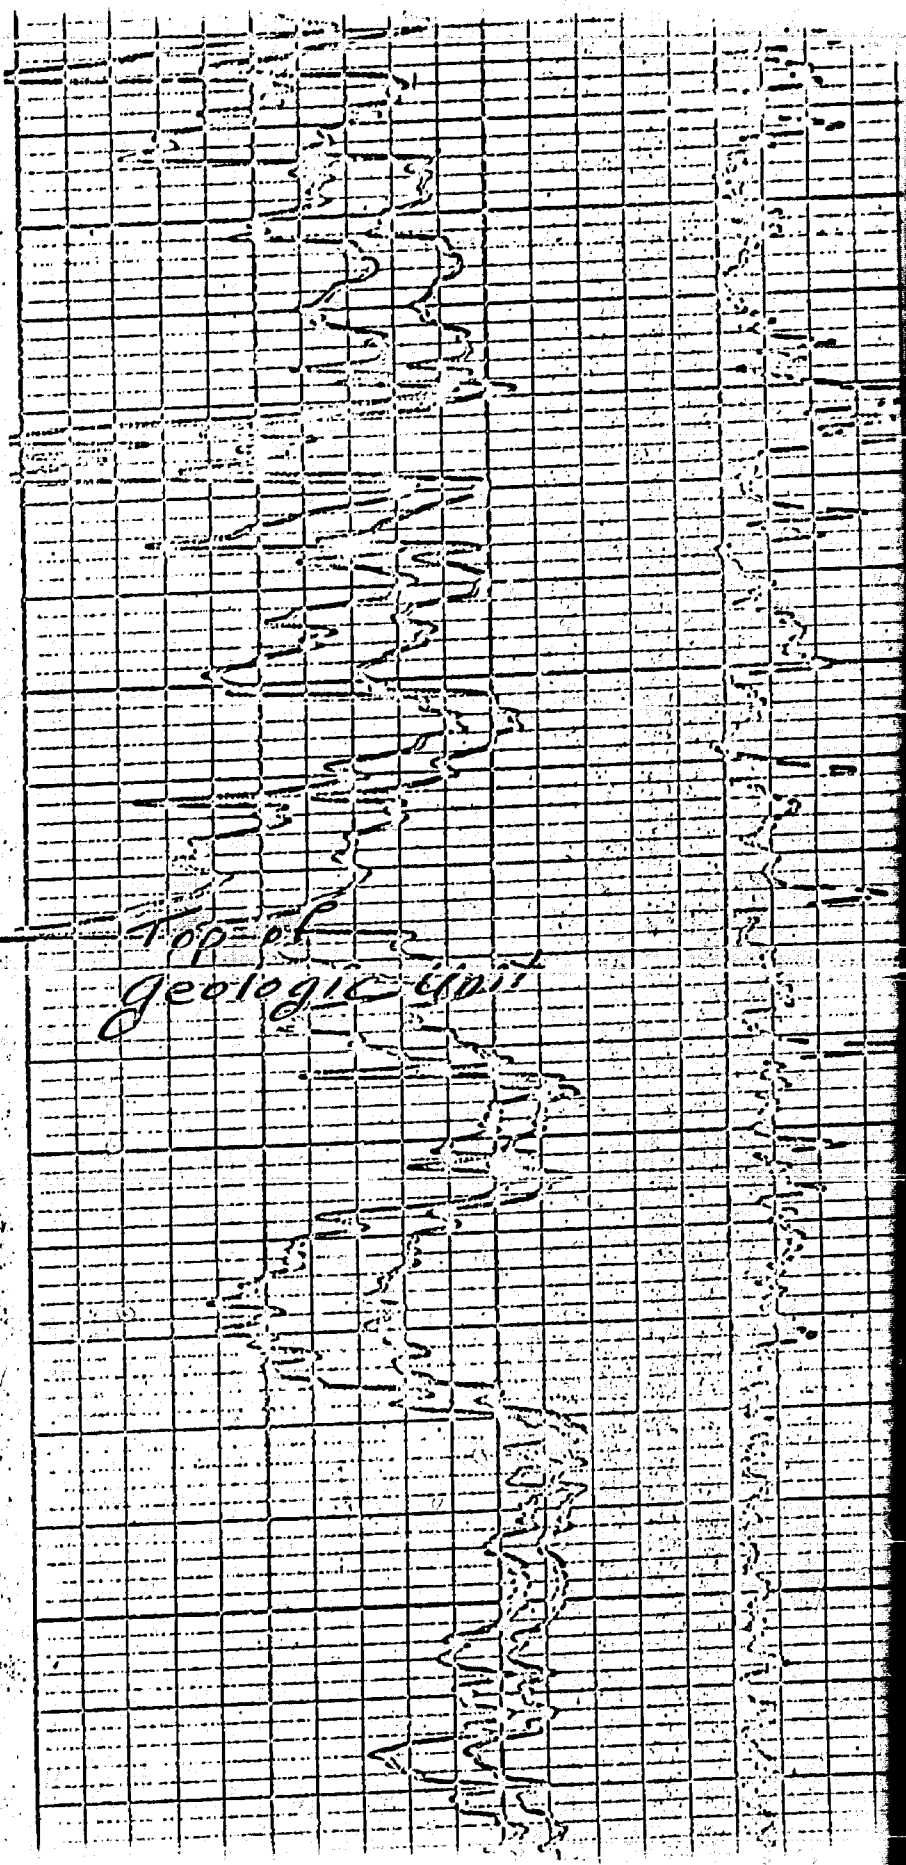 Top of
geologic unit